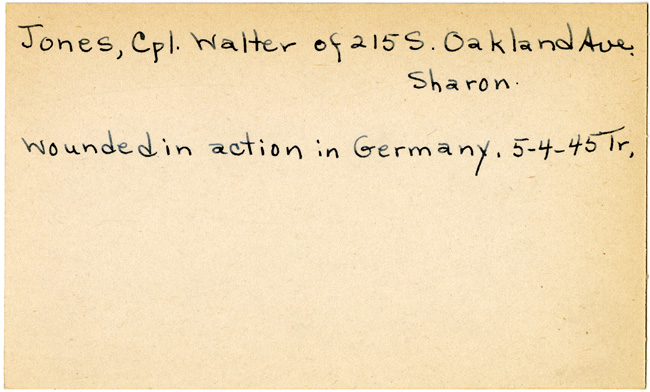 Jones, Cpl. Walter of 215 S. Oakland Ave.
Sharon.
Wounded in action in Germany. 5-4-45 Tr.